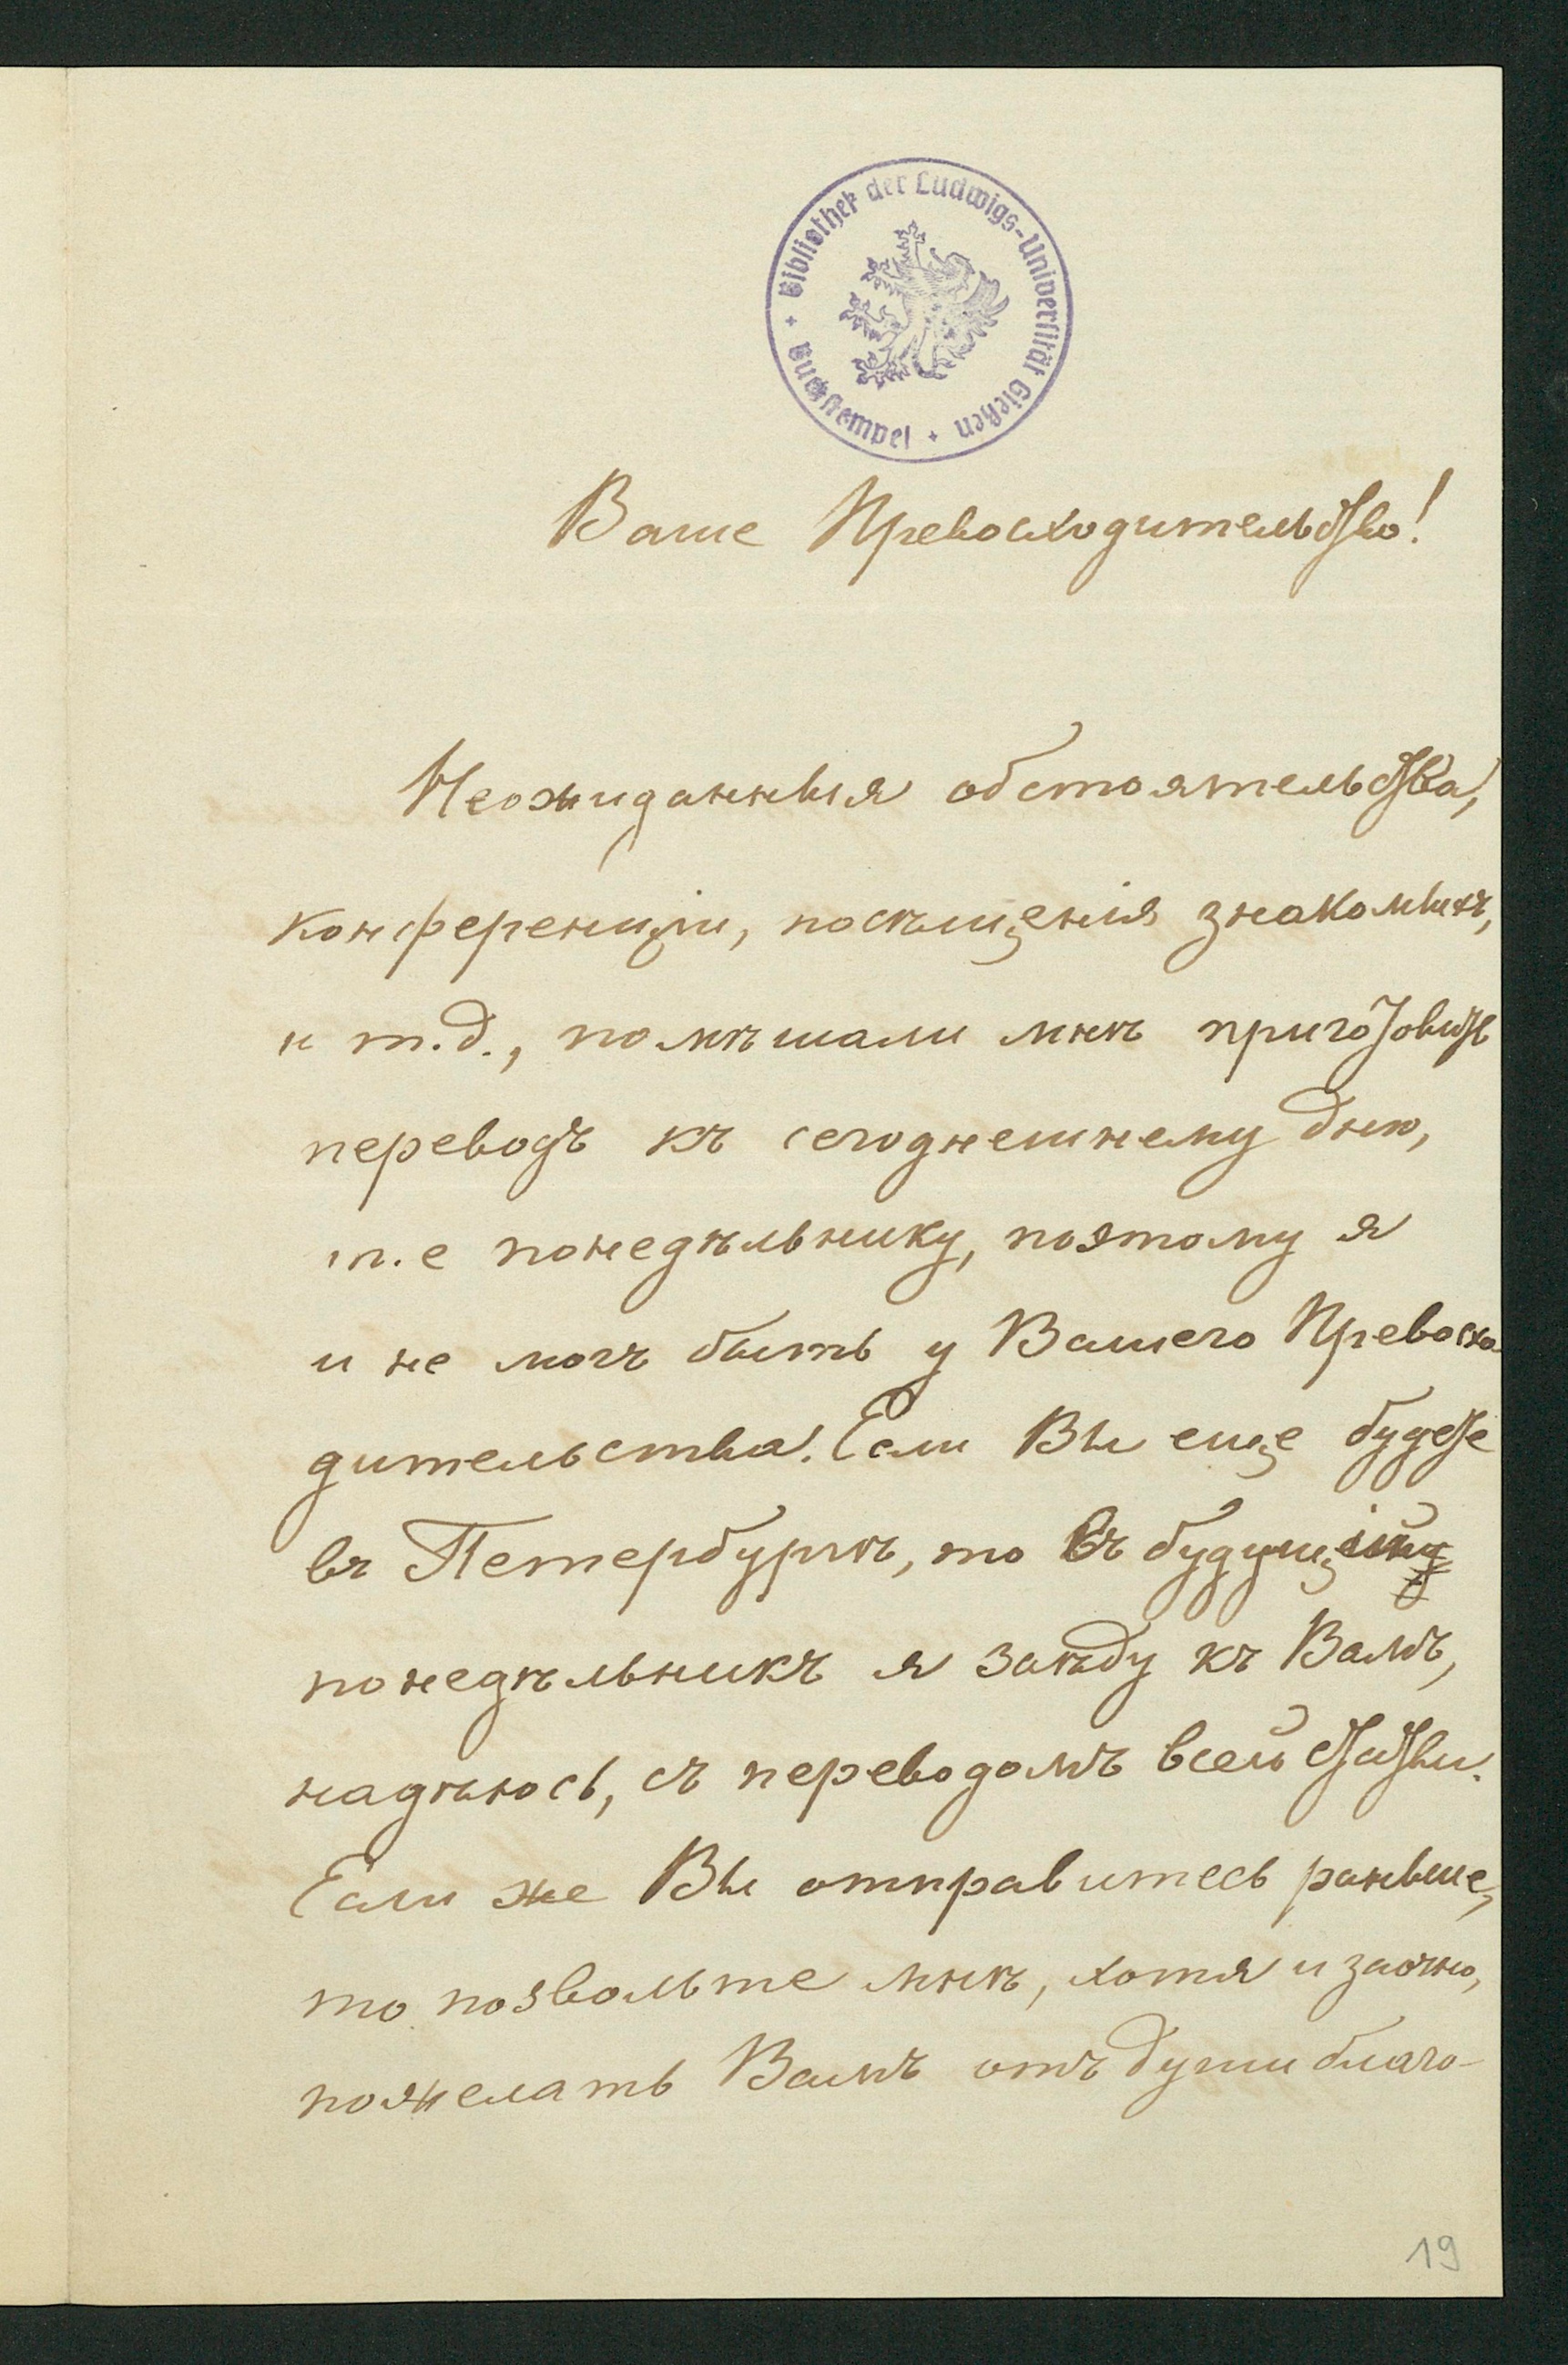 Bibliothek der Ludwigs-Universität Gießen + Buchstempel +
Ваше Превосходительство!
Неожиданныя обстоятельства,
конференціи, посѣщенія знакомыхъ,
и т.д., помѣшали мнѣ приготовить
переводъ къ сегоднешнему дню,
т.е понедѣльнику, поэтому я
и не могъ быть у Вашего Превосхо-
дительства. Если Вы еще будете
въ Петербургѣ, то въ будущій
понедѣльникъ я заѣду къ Вамъ,
надѣюсь, съ переводомъ всей статьи.
Если же Вы отправитесь раньше,
то позвольте мнѣ, хотя и заочно,
пожелать Вамъ отъ души благо-
19